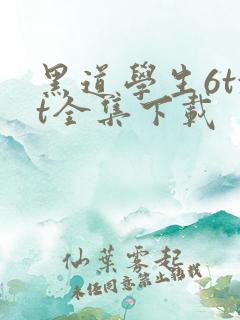 黑道學生6tx
t全集下載
仙葉雾起
未经同意禁止转载